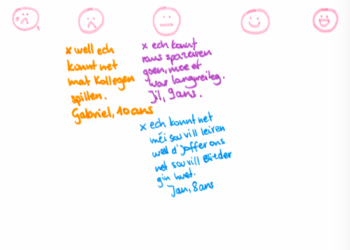 x well ech
konnt net
mat Kollegen
spillen.
Gabriel, 10 ans
x ech konnt
raus spazéieren
goen, mee et
war langweileg.
Jil, 9 ans.
x ech konnt net
méi sou vill léiren
well d'Joffer ons
net sou vill Blieder
gin huet.
Jan, 8 ans